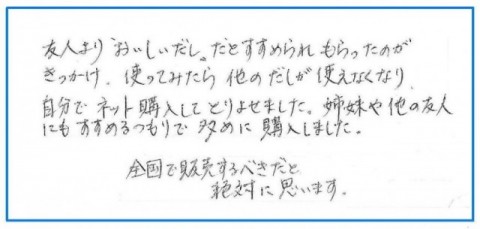 友人より"おいしいだし"だとすすめられ もらったのが
きっかけ、使ってみたら 他のだしが使えなくなり
自分で ネット購入して とりよせました。姉妹や他の友人
にも すすめるつもりで 多めに 購入しました。
全国で販売するべきだと
絶対に思います。